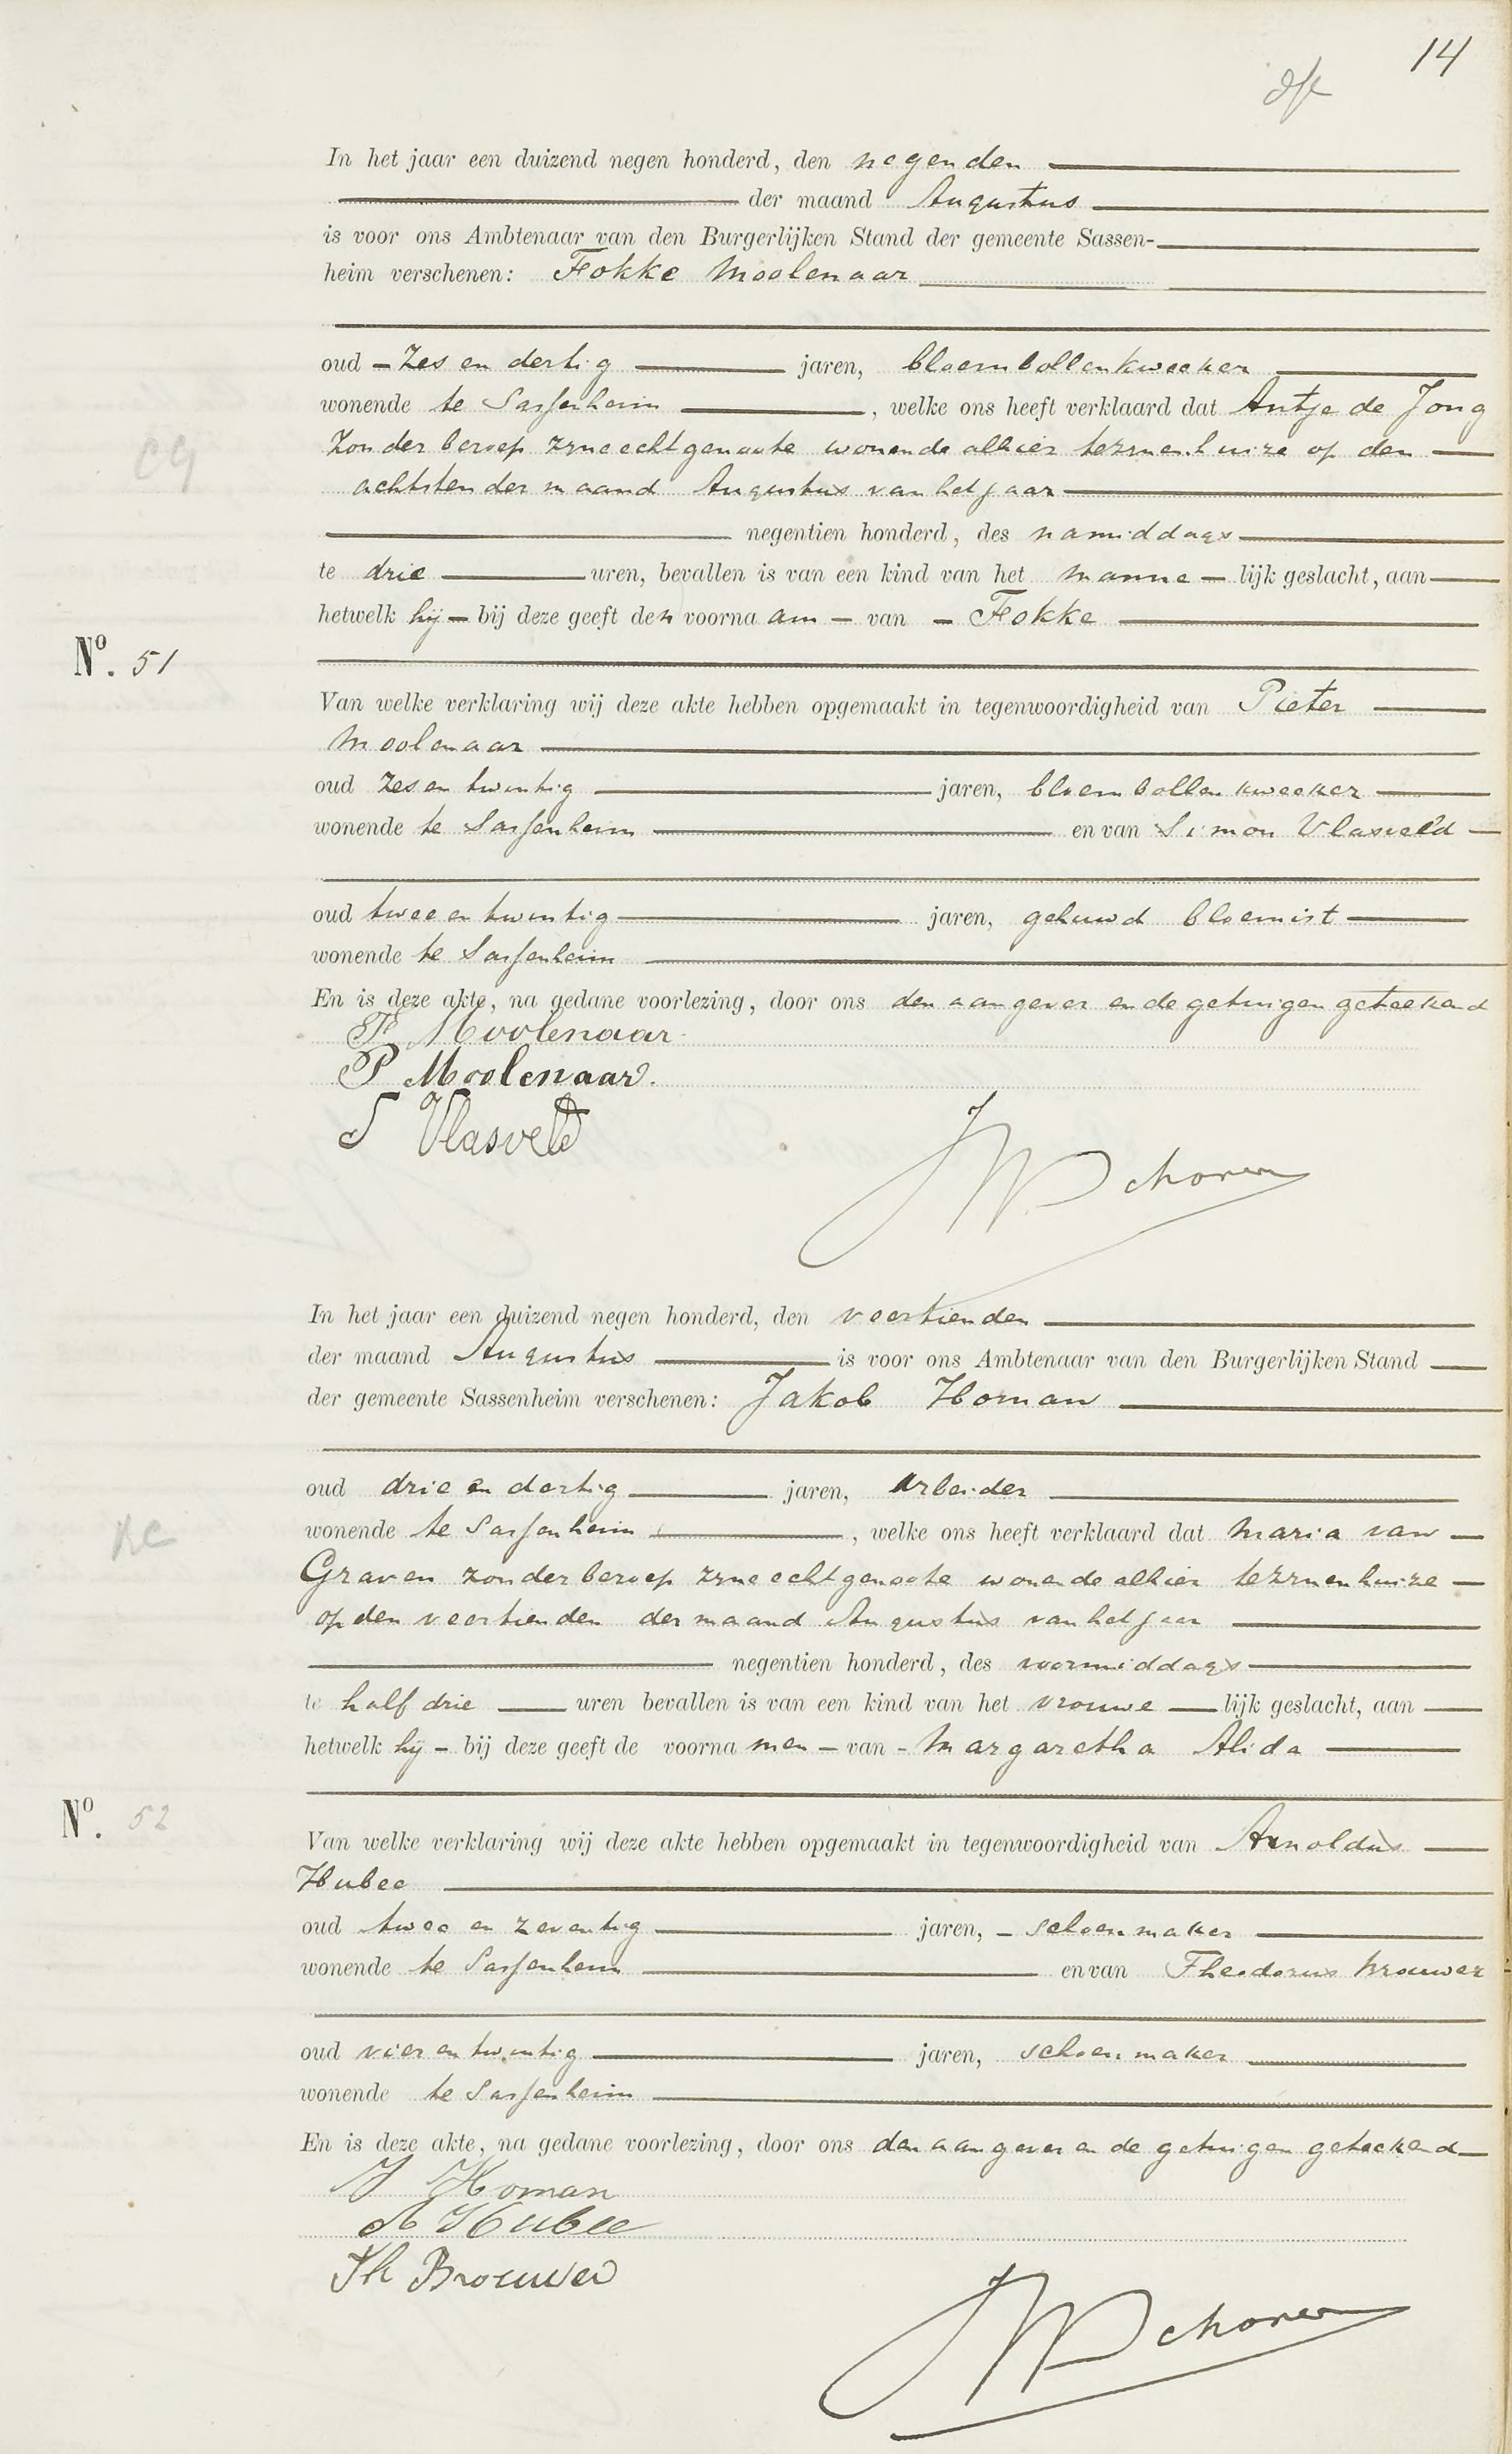 14
In het jaar een duizend negen honderd, den negenden
der maand Augustus
is voor ons Ambtenaar van den Burgerlijken Stand der gemeente Sassen-
heim verschenen: Fokke Moolenaar
oud zes en dertig jaren, bloembollenkweeker
wonende te Sassenheim, welke ons heeft verklaard dat Antje de Jong
zonder beroep zijne echtgenoote wonende alhier tezijnenhuize op den
achtsten der maand Augustus van het jaar
negentien honderd, des namiddags
te drie uren, bevallen is van een kind van het manne lijk geslacht, aan
hetwelk hij bij deze geeft den voorna am van Fokke
No. 51
Van welke verklaring wij deze akte hebben opgemaakt in tegenwoordigheid van Pieter
Moolenaar
oud zes en twintig jaren, bloembollenkweeker
wonende te Sassenheim en van Simon Vlasveld
oud twee en twintig jaren, gehuwd bloemist
wonende te Sassenheim
En is deze akte, na gedane voorlezing, door ons den aangever en de getuigen geteekend
F Moolenaar
P Moolenaar.
S Vlasveld
JWSchoren
In het jaar een duizend negen honderd, den veertienden
der maand Augustus is voor ons Ambtenaar van den Burgerlijken Stand
der gemeente Sassenheim verschenen: Jakob Homan
oud drie en dertig jaren, arbeider
wonende te Sassenheim, welke ons heeft verklaard dat Maria van
Graven zonder beroep zijne echtgenoote wonende alhier tezijnenhuize
op den veertienden der maand Augustus van het jaar
negentien honderd, des voormiddags
te half drie uren bevallen is van een kind van het vrouwe lijk geslacht, aan
hetwelk hij bij deze geeft de voorna men van Margaretha Alida
No. 52
Van welke verklaring wij deze akte hebben opgemaakt in tegenwoordigheid van Arnoldus
Hubee
oud twee en zeventig jaren, schoenmaker
wonende te Sassenheim en van Theodorus Brouwer
oud vier en twintig jaren, schoenmaker
wonende te Sassenheim
En is deze akte, na gedane voorlezing, door ons den aangever en de getuigen geteekend
J Homan
A Hubee
Th Brouwer
JWSchoren